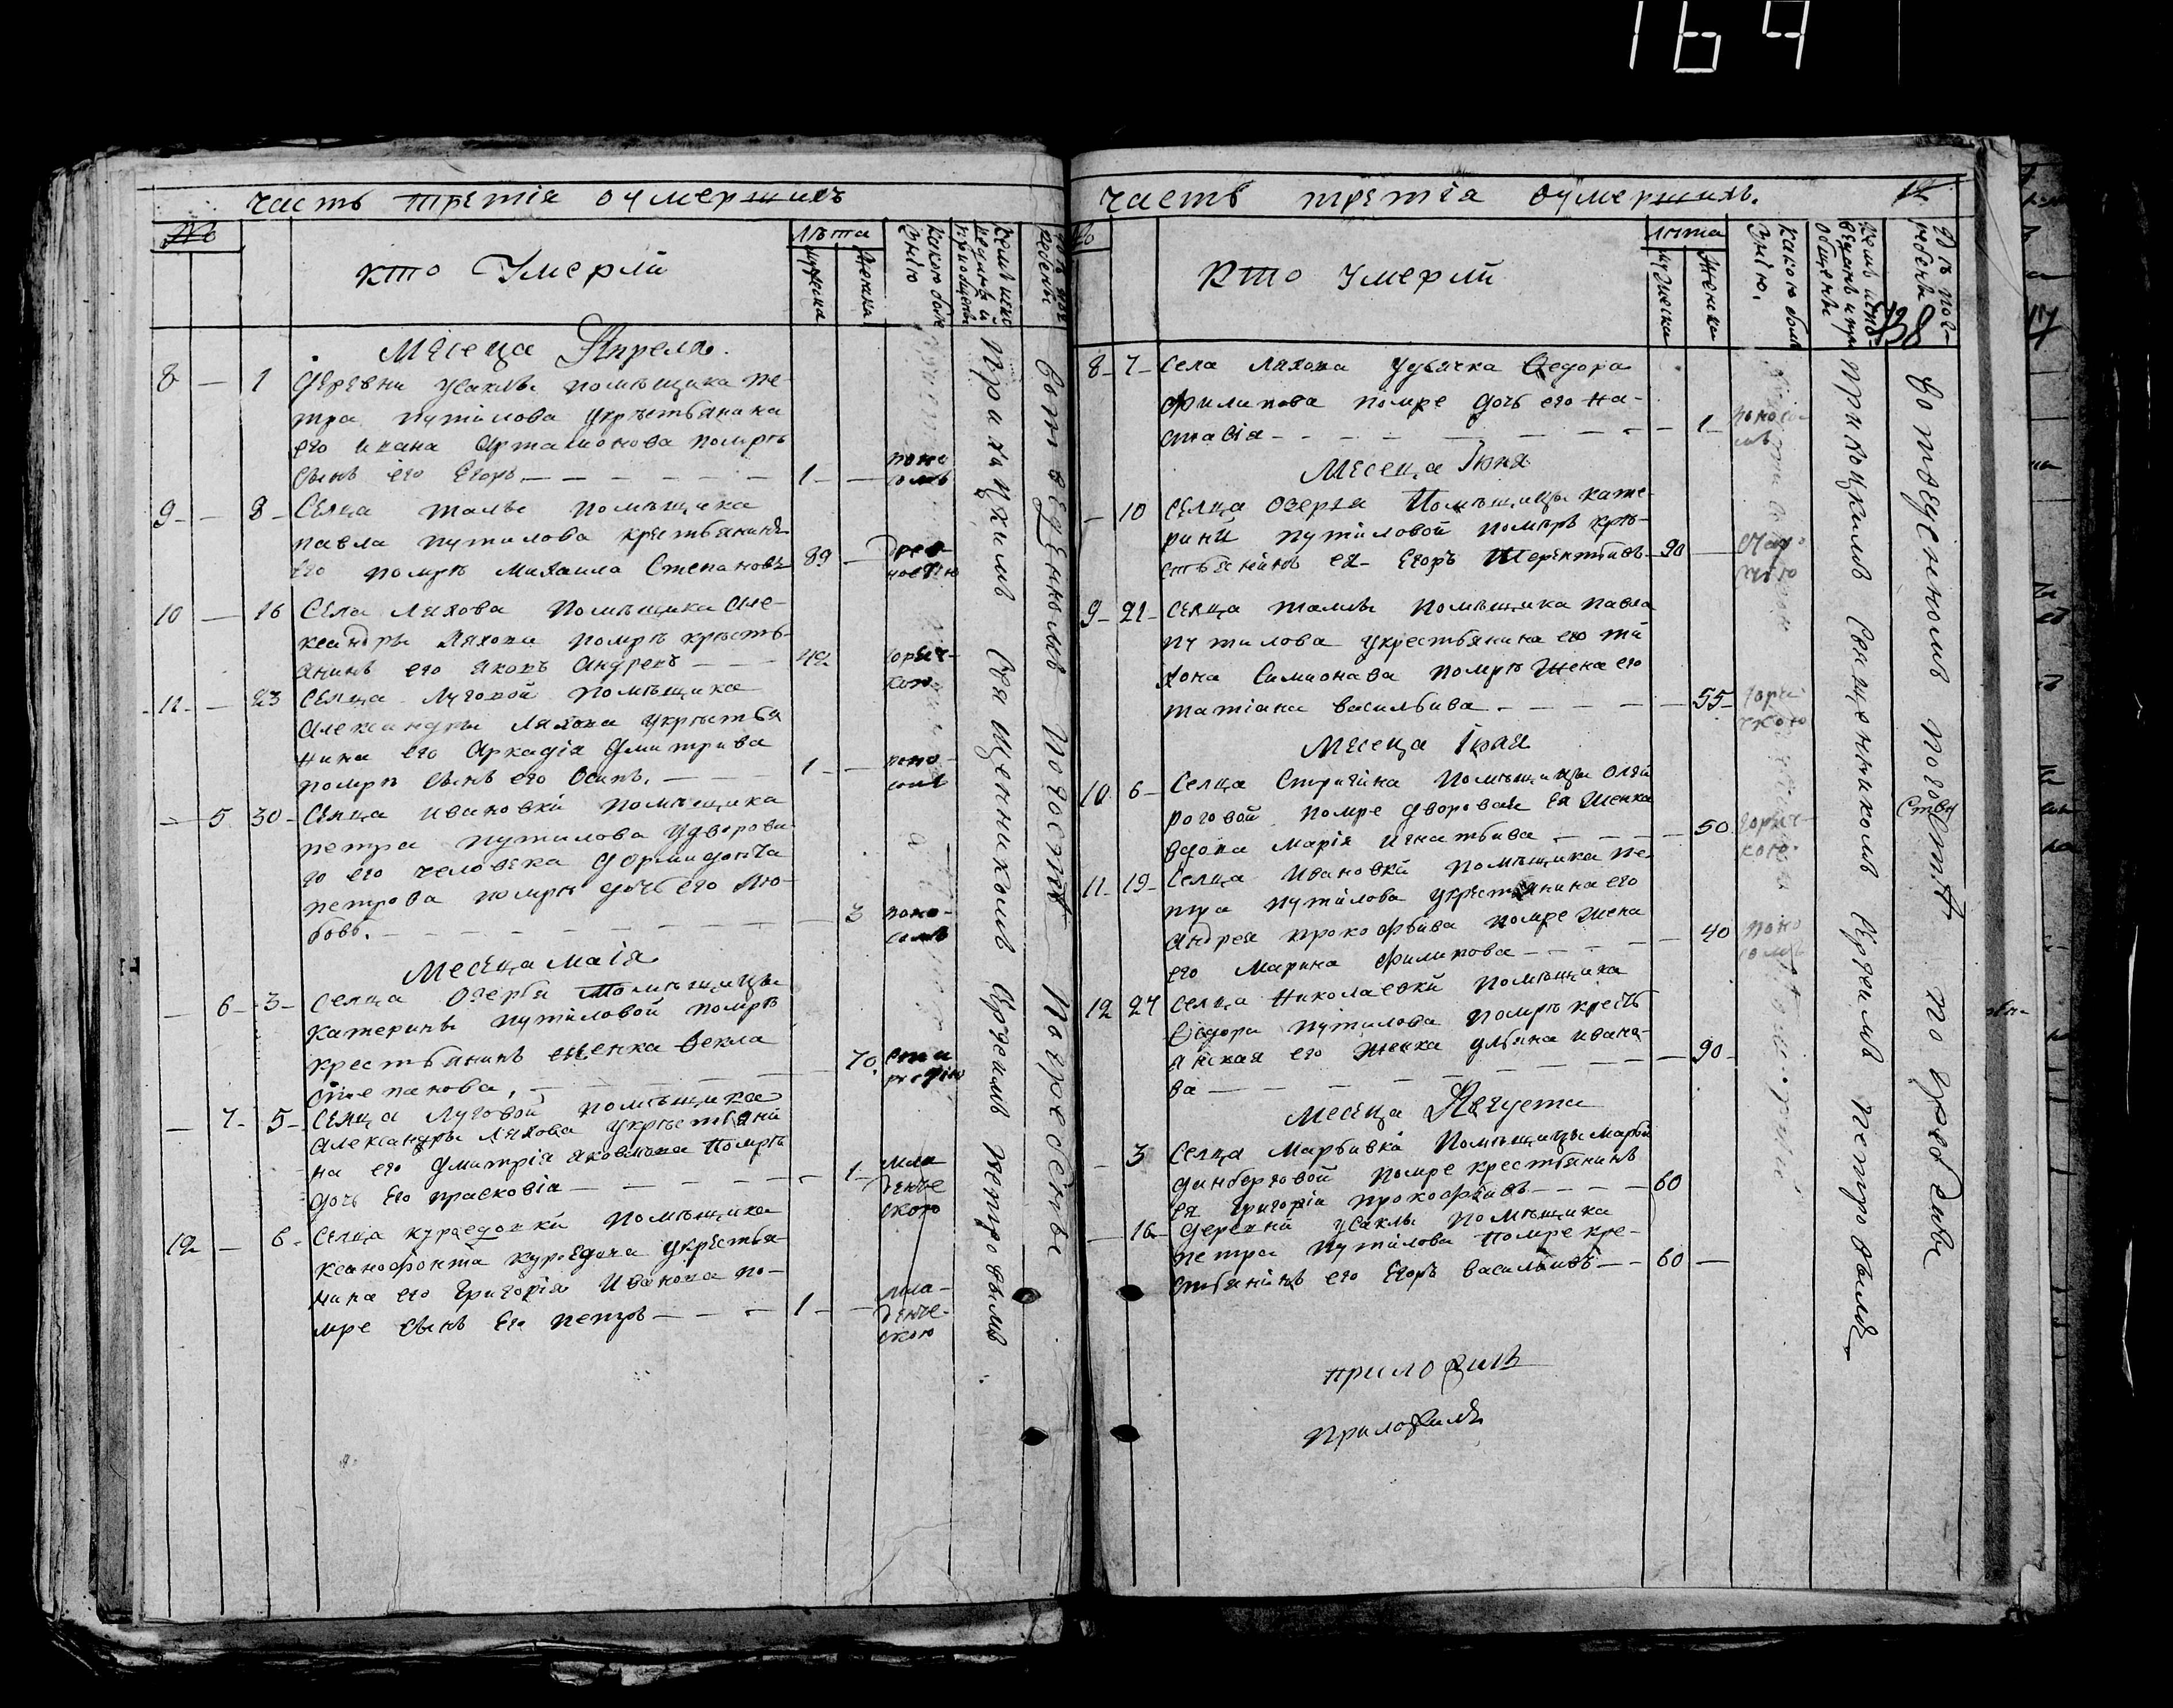 164
часть третiя оумершихъ
№
кто Умерли
лѣта
мужеска
женска
какою боле
знiю
кемъ испо
веданы и
приобщены
Месеца Апреля.
8 — 1 деревни Усаклы помѣщика пе-
тра путилова укрѣстьянина
его ивана Артамонова помрѣ
сынъ его Егоръ — 1 — поно
сомъ
9 — 8 Селца помѣщика
павла путилова крестьянинъ
его помрѣ Михаила Степановъ 89 — древ-
ностiю
10 — 16 Села Ляхова помѣщика Але-
ксандры Ляхова помрѣ крѣсть-
янинъ его яковъ Андреевъ — 42 горяч-
кою
11 — 23 Селца Луговой помѣщика
Александры Ляхова укрѣстья
нина его Аркадiя дмитрива
помрѣ сынъ его Осипъ. — 1 — поно-
сомъ
— 5 30 Селца ивановки помѣщика
петра путилова удворова
го его человека дормидонта
петрова помрѣ дочь его Лю-
бовь. — 3 поно-
сомъ
Месеца маiя
— 6 3 Селца Озерья Помѣщицы
Катерины путиловой помрѣ
крестьянинъ женка Фекла
Степанова, — 70 ста
ростiю
— 7 5 Селца Луговой помѣщика
Александры Ляхова укрѣстьяни
на его дмитрiя яковлива помрѣ
дочь Его прасковiа — 1 мла
денче
скою
12 — 6 Селца куроедовки помѣщика
ксенофонта куроедова укрѣстья-
нина его Григорiя Иванова по-
мре сынъ Его петръ — 1 — мла-
денче-
скою
При Духовникомъ Священникомъ Сергеимъ петровымъ.
во отведенномъ погостѣ погребены
часть третiа оумершихъ.
№
Кто Умерли
лѣта
мужеска
женска
какою боле
знiю.
кемъ испо-
веданъ и прi
общены
где пог-
ребены
438
8 7 Села Ляхова удьячка Федора
филипова помре дочь его На-
стасiя — 1 поносо
мъ
Месеца Iюня
— 10 Селца Озерья Помѣщицы кате-
рини путиловой помѣрѣ крѣ-
стьянинъ ея Егоръ Терентьивъ 90 — Старо
стiю
9 21 Селца помѣщика павла
путилова укрестьянина его ти
хона Симионава помрѣ жена его
татiана васильива. — 55 горя
чкою
Месеца Iюля
10 6 Селца Стригина помѣщицы
роговой помре дворовая Ея женка
вдова Марiя игнатьива — 50 горяч-
кою.
11 19 Селца ивановки помѣщика пе-
тра путилова укрестьянина его
Андрея прокофьива помре жена
его Марина филипова — 40 поно
сомъ
12 24 Селца Николаевки помѣщика
Федора путилова помрѣ кресть
янская его женка ульяна ивано-
ва — 90
Месеца Августа
— 3 Селца Марьивки помѣщицы Марьи
помре крестьянинъ
ея Григорiй прокофьивъ — 60
— 16 деревни усаклы помѣщика
петра путилова помре кре-
стьянинъ его Егоръ васильивъ — 60 —
приложилъ
приложилъ
Священникомъ Сергеимъ петровымъ
во отведенномъ погостѣ погребены